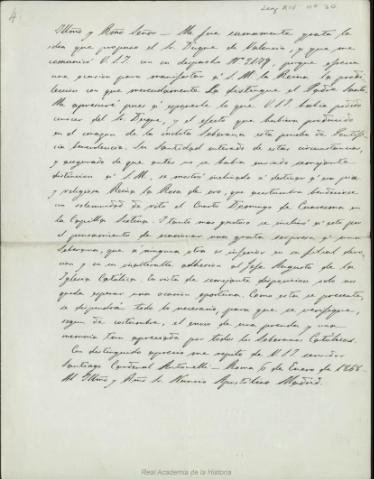 4
Leg XIV nº 30
Illmo y Rmo Señor — Me fue sumamente grata la
idea que propuso el Sr Duque de Valencia, y que me
comunicó V.S.I. en su despacho Nº
una ocasión para manifestar a S.M. la Reina la predi-
leccion con que merecidamente la distingue el Padre Santo.
Me apresuré pues a la que V.S.I. había
del Sr Duque, y el efecto que hubiera producido
en el corazon de la ínclita Soberana esta prueba de Pontifi-
cia benevolencia. Su Santidad enterado de estas circunstancias,
y asegurado de que antes no se había enviado semejante
distincion a S.M., se mostró inclinado a distinguir a un pia
y religiosa Reina la Rosa de oro, que acostumbra bendecirse
en solemnidad de rito el Cuarto Domingo de Cuaresma en la
Capilla Sixtina. I tanto mas gustoso se inclinó a esto por
el pensamiento de una grata sorpresa a una
Soberana, que a ninguna otra es inferior en su filial devo-
cion y en su inalterable adhesion al Jefe Augusto de la
Iglesia Católica. En vista de semejante disposicion solo nos
queda esperar una ocasión oportuna. Como esta se presente,
se dispondrá todo lo necesario, para que se verifique,
segun de costumbre, el envio de una prenda y una
memoria tan apreciada por todos los Soberanos Católicos.
Con distinguido aprecio me repito de V.S.I. servidor
Santiago Cardenal Antonelli — Roma 6 de Enero de 1868 —
Al Illmo y Rmo Sr Nuncio Apostólico Madrid.
Real Academia de la Historia